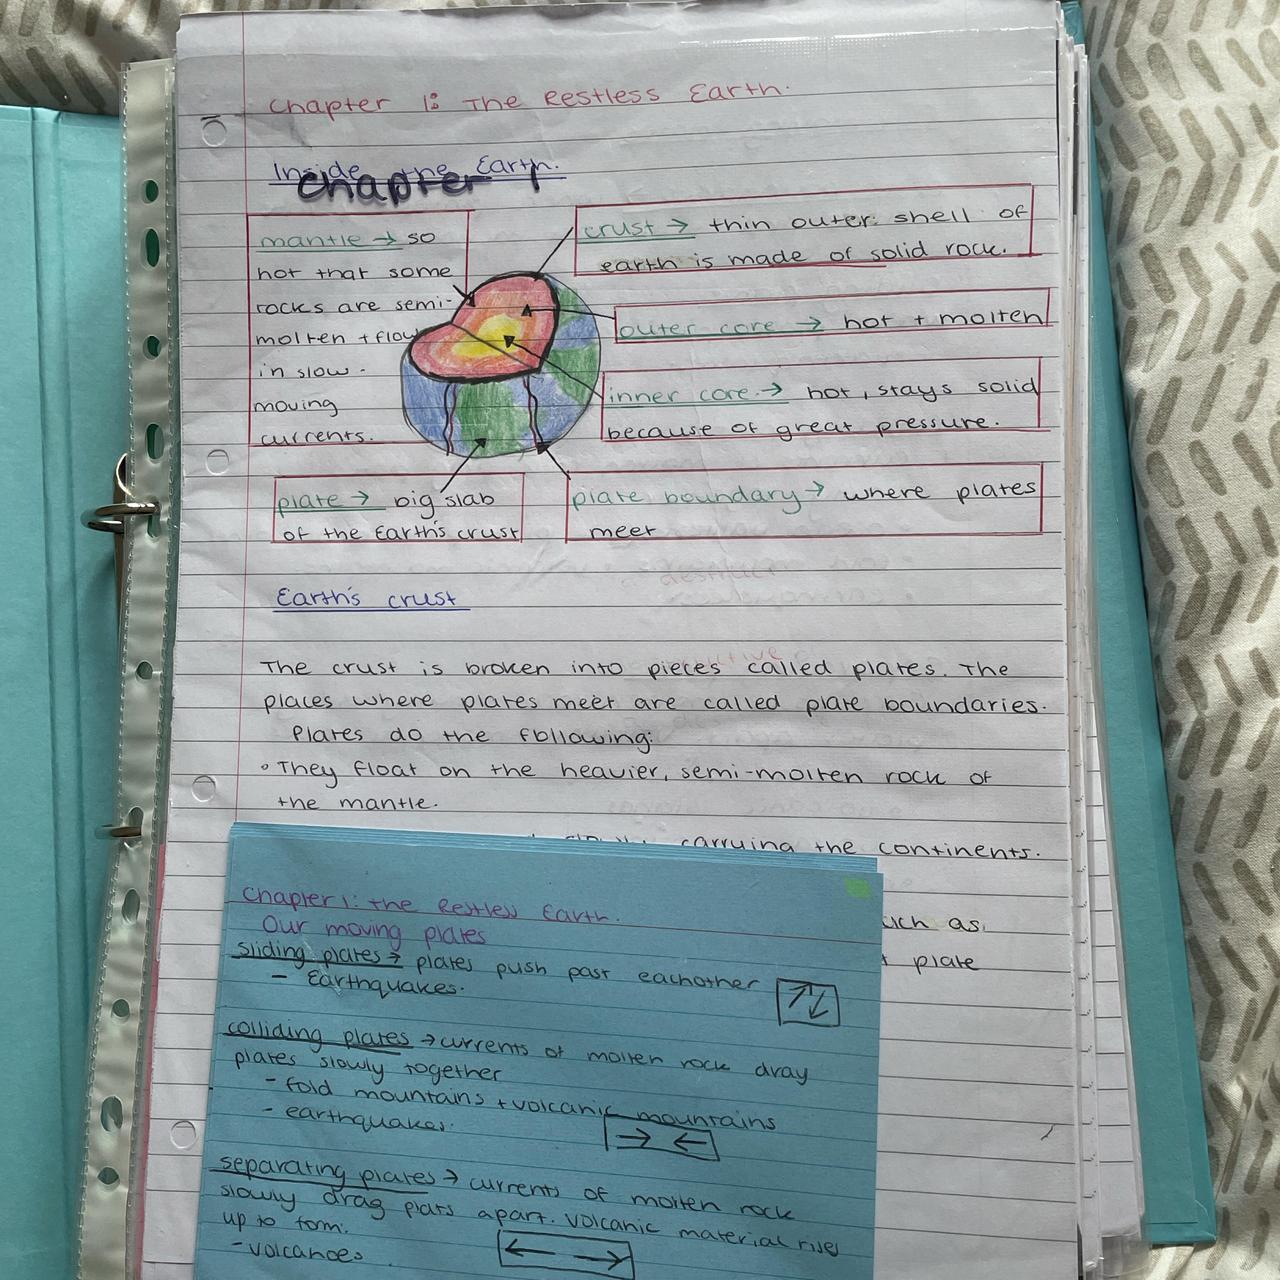 Chapter 1: The Restless Earth.
Inside the Earth.
Chapter 1
mantle → so
hot that some
rocks are semi-
molten + flow
in slow -
moving
currents.
crust → thin outer shell of
earth is made of solid rock.
outer core → hot + molten
inner core → hot, stays solid
because of great pressure.
plate → big slab
of the Earth's crust
plate boundary → where plates
meet
Earth's crust
The crust is broken into pieces called plates. The
places where plates meet are called plate boundaries.
Plates do the following:
• They float on the heavier, semi-molten rock of
the mantle.
carrying the continents.
such as
plate
Chapter 1: the Restless Earth.
Our moving plates
sliding plates → plates push past eachother
- Earthquakes.
colliding plates → currents of molten rock dray
plates slowly together
- fold mountains + volcanic mountains
- earthquakes.
separating plates → currents of molten rock
slowly drag plats apart. volcanic material rises
up to form.
- volcanoes